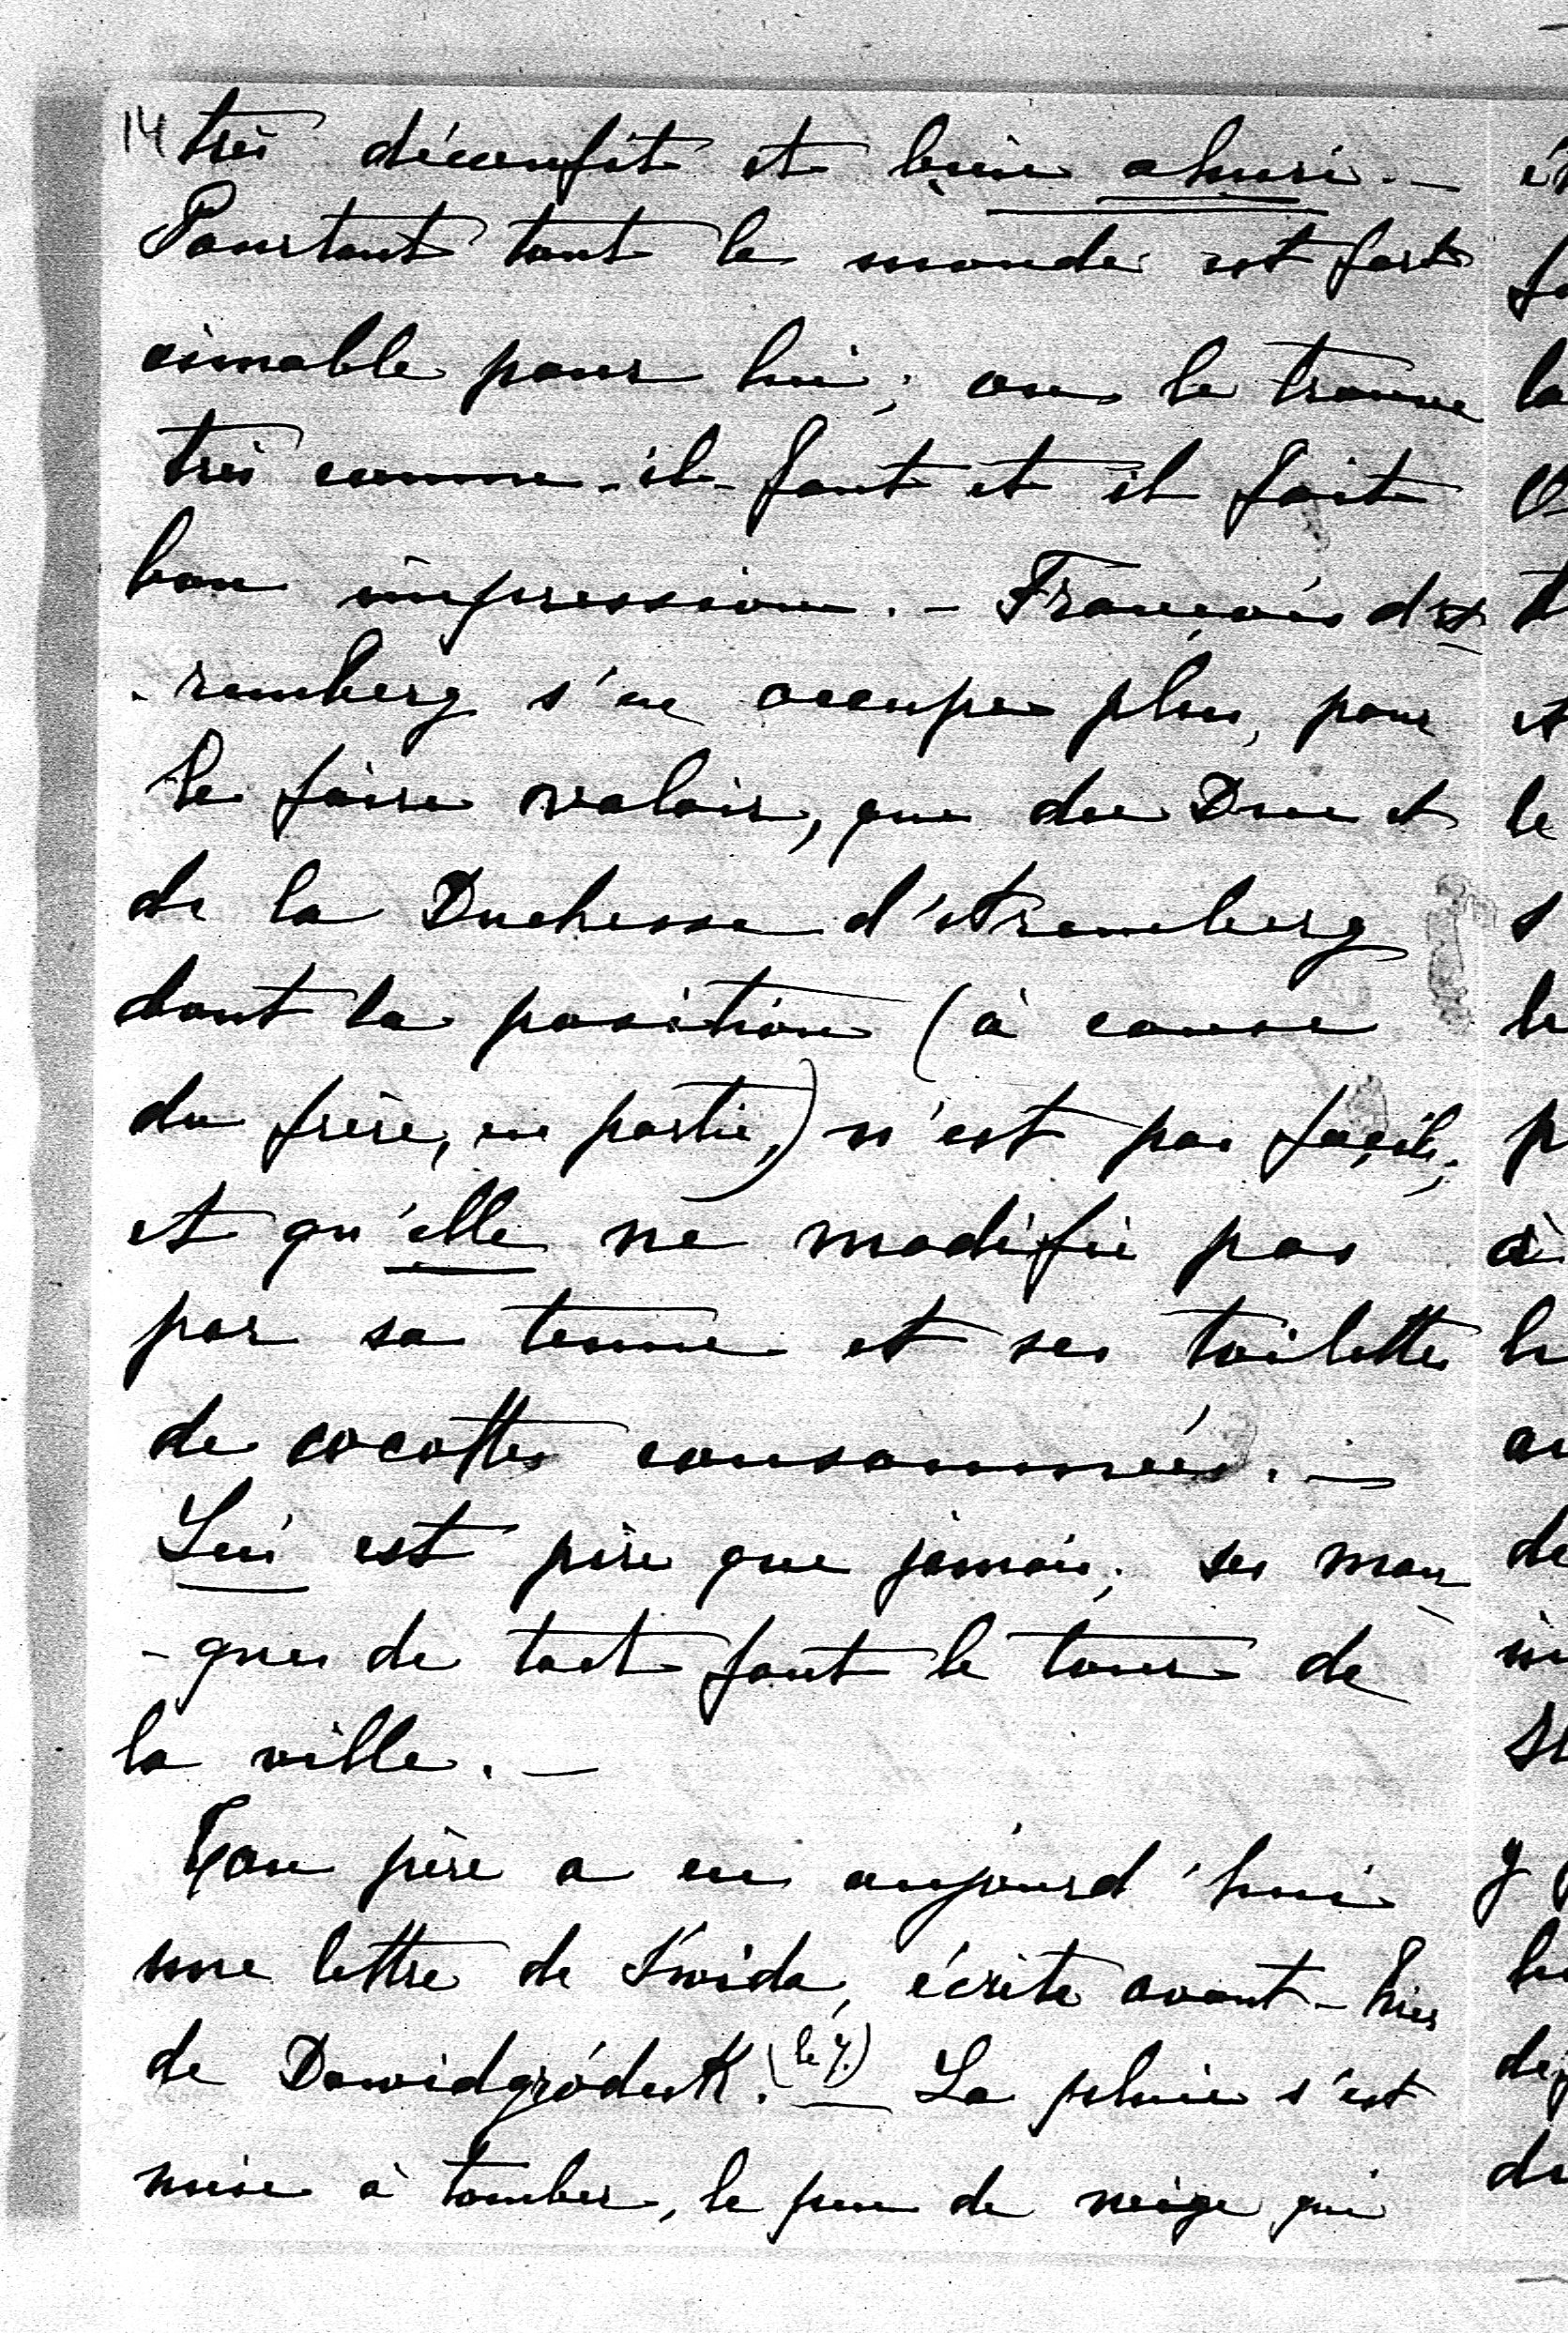 14 très déconfit et bien ahuri. —
Pourtant tout le monde est fort
aimable pour lui; on le trouve
très comme-il-faut et il fait
bon impression. — François d'A
-remberg s'en occupe plus, pour
le faire valoir, que du Duc et
de la Duchesse d'Aremberg
dont la position (à cause
du frère, en partie,) n'est pas facile,
et qu'elle ne modifie pas
par sa tenue et ses toilettes
de cocottes consommées. —
Lui est pire que jamais; ses man
-ques de tact font le tour de
la ville. —
Ton père a eu aujourd'hui
une lettre de Kwida, écrite avant-hier
de Dawidgródek. (le 7.) — La pluie s'est
mise à tomber, le peu de neige qui